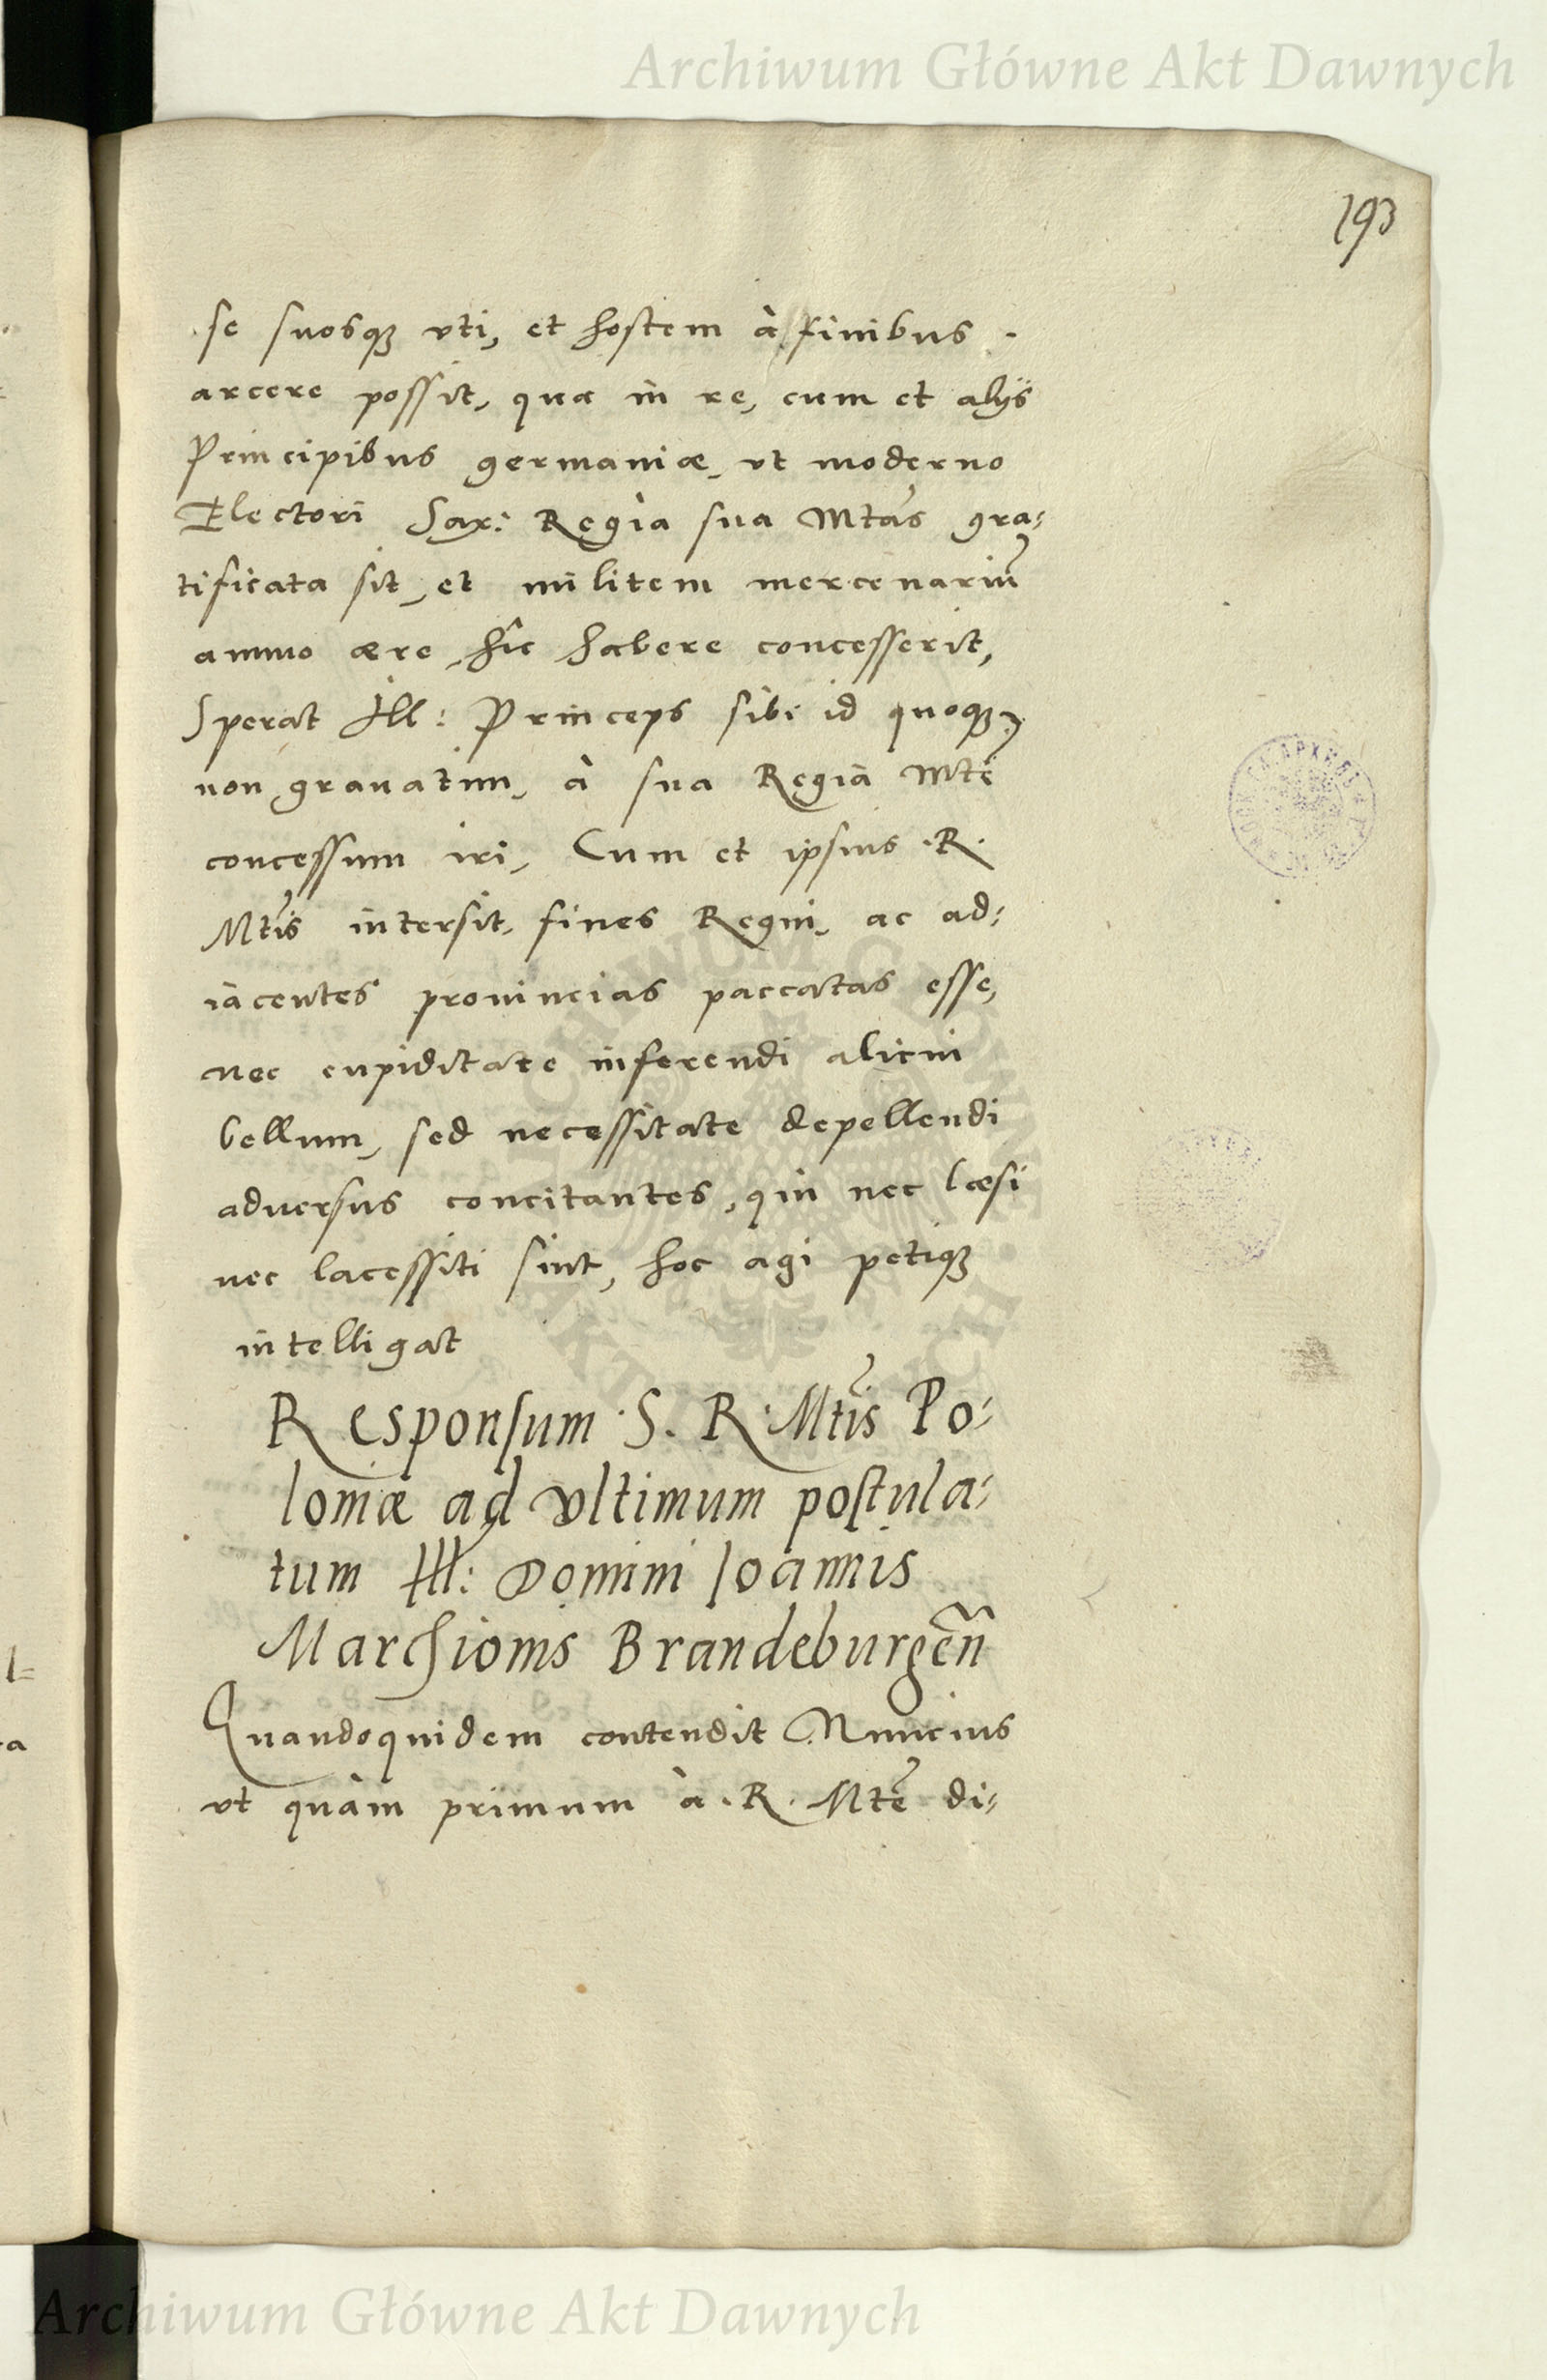 Archiwum Główne Akt Dawnych
193
se suosq; vti, et hostem à finibus
arcere possit, qua in re, cum et alijs
Principibus germaniæ, vt moderno
Electori Sax: Regia sua Mtas gra-
tificata sit, et militem mercenariũ
annuo ære hîc habere concesserit,
Sperat Ill: Princeps sibi id quoq;
non grauatim, à sua Regia Mte
concessum iri, Cum et ipsius .R.
Mtis intersit, fines Regni, ac ad-
iacentes prouincias paccatas esse,
nec cupiditate inferendi alicui
bellum, sed necessitate depellendi
aduersus concitantes, qui nec læsi
nec lacessiti sint, hoc agi petiq;
intelligat
Responsum S. R. Mtis Po-
loniæ ad vltimum postula-
tum Ill: Domini Ioannis
Marchionis Brandeburgeñ
Quandoquidem contendit Nuncius
vt quàm primum à .R. Mte di-
Archiwum Główne Akt Dawnych